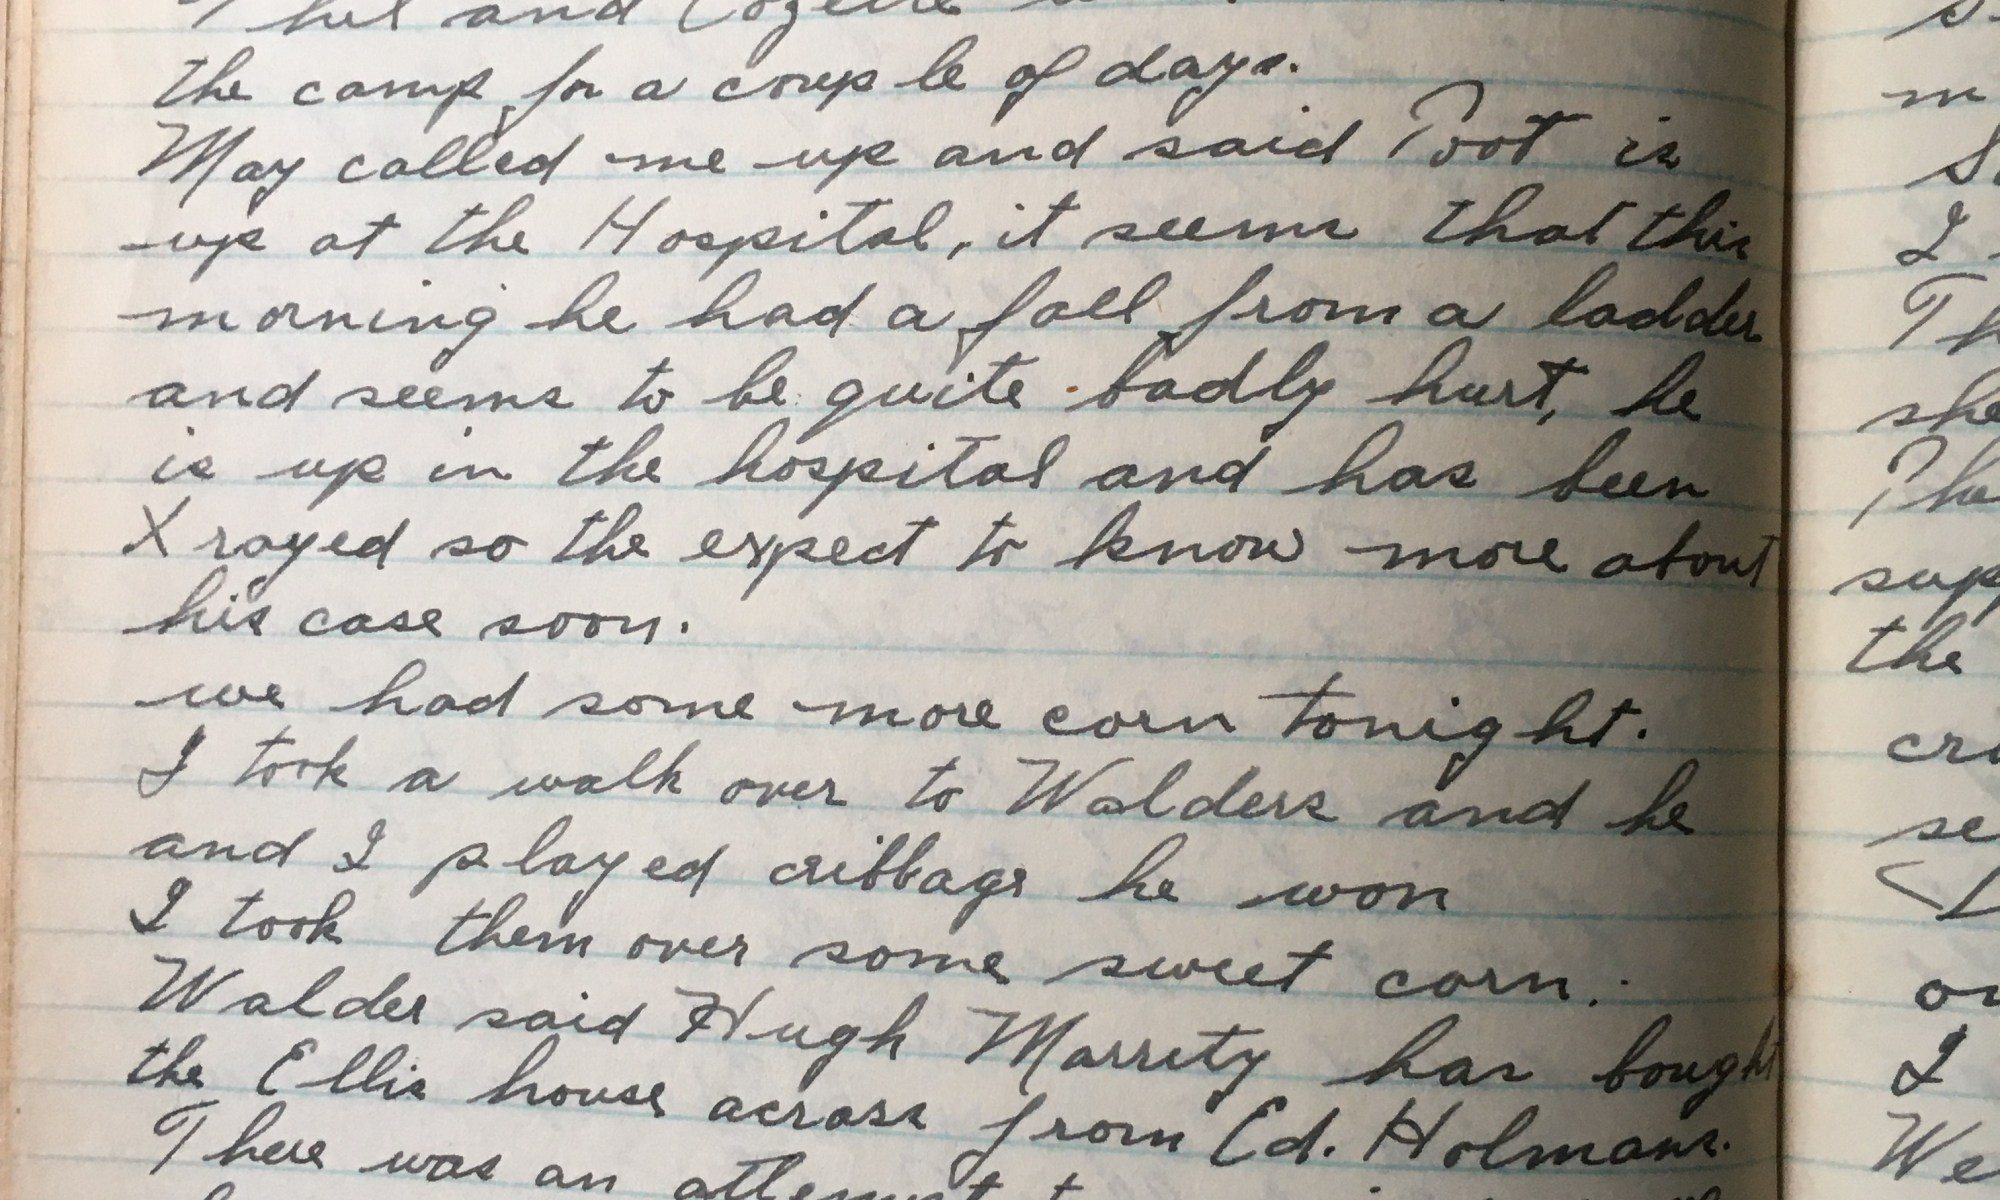 and
the camp for a couple of days.
May called me up and said Toot is
up at the Hospital, it seems that this
morning he had a fall from a ladder
and seems to be quite badly hurt, he
is up in the hospital and has been
X rayed so the expect to know more about
his case soon.
we had some more corn tonight.
I took a walk over to Walders and he
and I played cribbage he won
I took them over some sweet corn.
Walder said Hugh Marrity has bought
the Ellis house across from Ed. Holmans.
There was an attempt
I
she
the
I
We